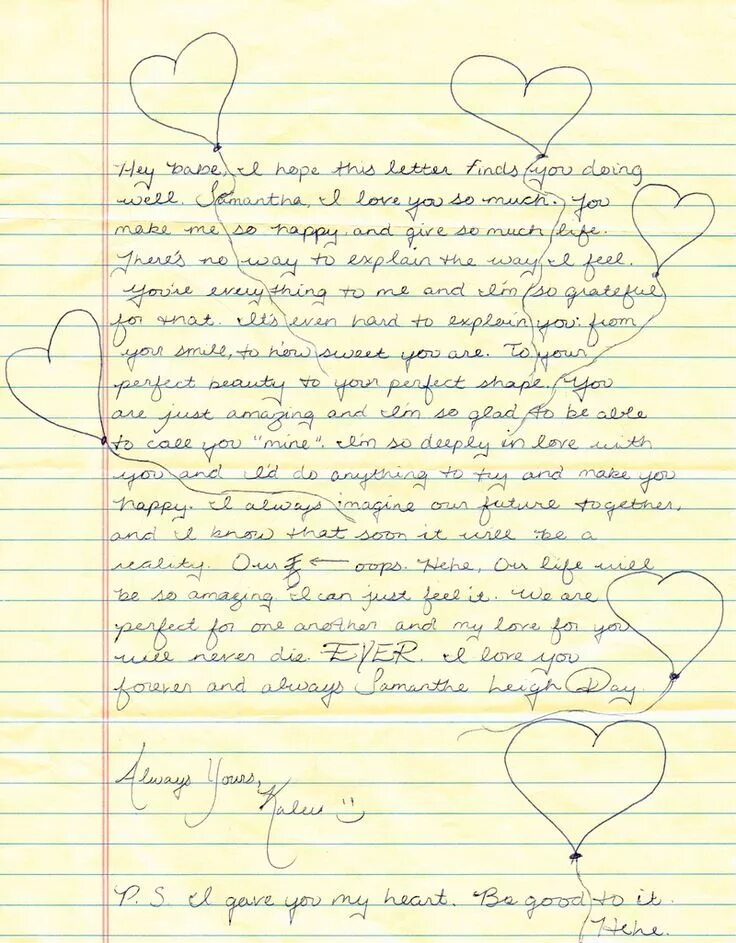 Hey babe, I hope this letter finds you doing
well. Samantha, I love you so much. You
make me so happy, and give so much life.
There's no way to explain the way I feel.
You're everything to me and I'm so grateful
for that. It's even hard to explain you: from
your smile, to how sweet you are. To your
perfect beauty to your perfect shape. You
are just amazing and I'm so glad to be able
to call you "mine". I'm so deeply in love with
you and I'd do anything to try and make you
happy. I always imagine our future together,
and I know that soon it will be a
reality. Our ← oops. Hehe, Our life will
be so amazing. I can just feel it. We are
perfect for one another and my love for you
will never die. EVER. I love you
forever and always Samantha Leigh Day.
Always Yours,
P.S. I gave you my heart. Be good to it.
Hehe.